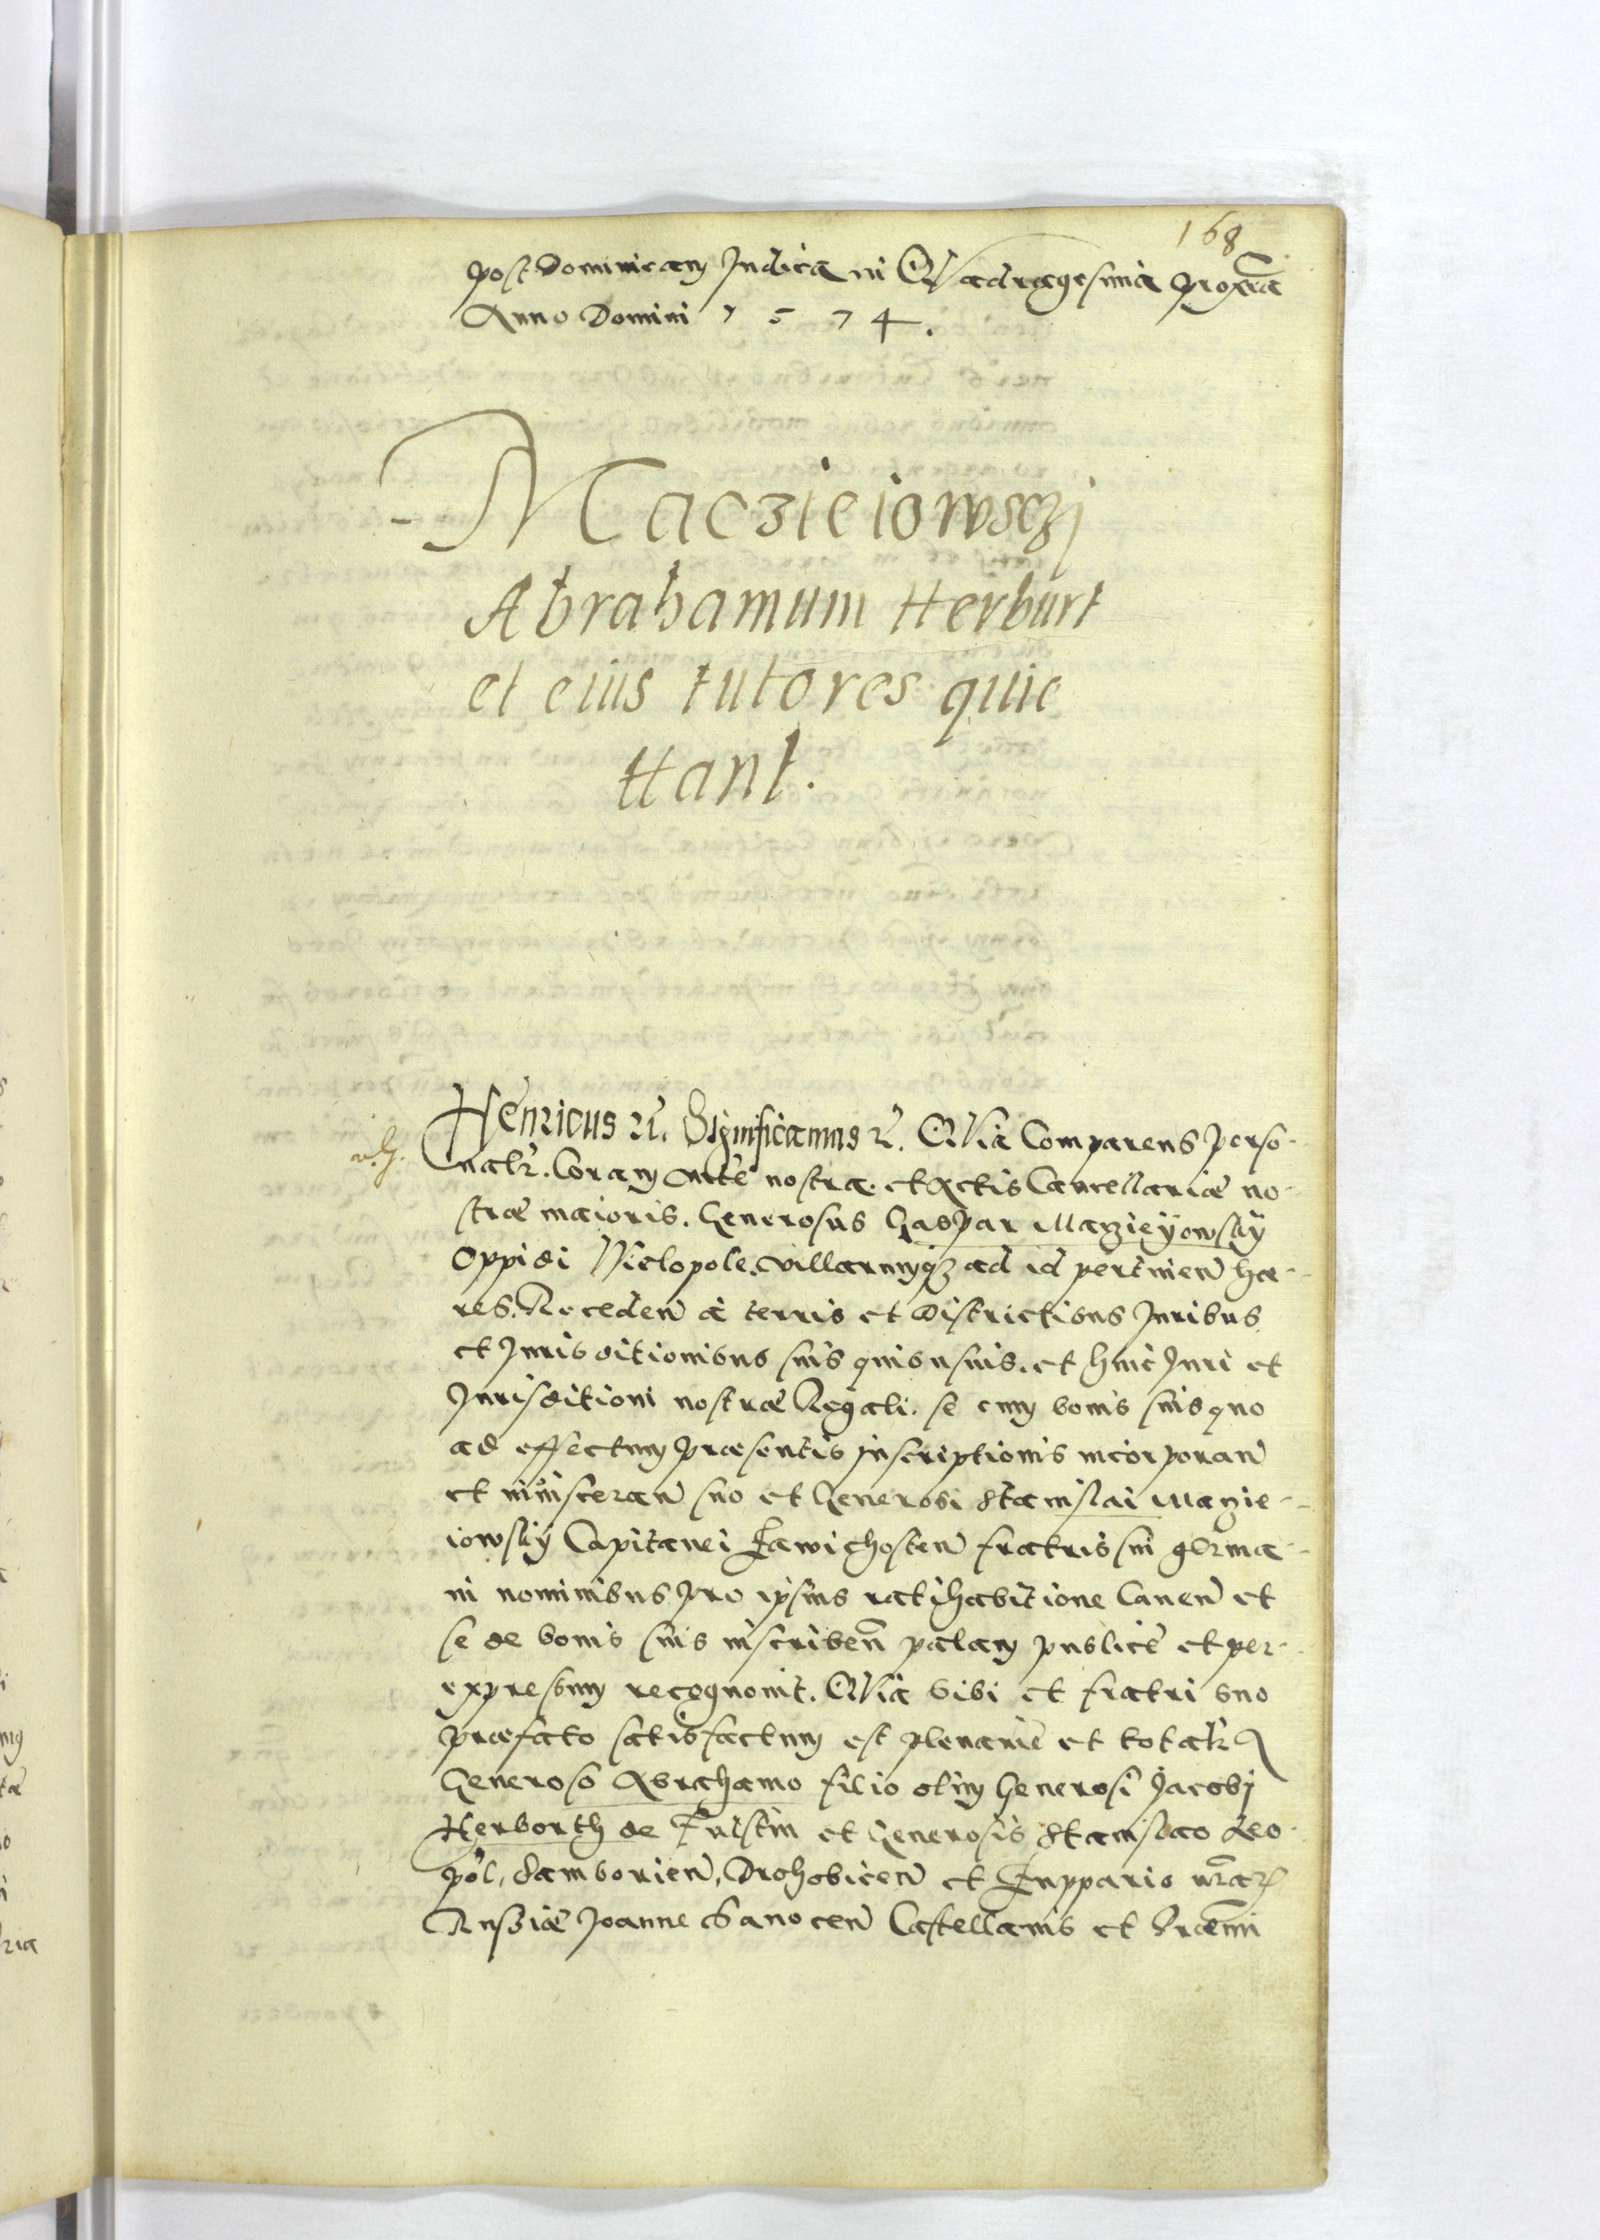 168
post Dominicam Judica in Quadragesima proxĩa
Anno Domini 1574.
Maczieiowsczj
Abrahamum Herburt
et eius tutores quie
ttant.
Henricus etc. Significamus etc. Quia Comparens perso-
nalr. Coram Mtte nostra. et Actis Cancellariæ no-
stræ maioris. Generosus Gaspar Maczieyowsky
Oppidi Vielopole. villarumq3 ad id pertinen̄ hæ-
res. Receden̄ à terris et districtibus Juribus
et Jurisditionibus suis quibusuis. et huic Juri et
Jurisditioni nostræ Regali. se cum bonis suis quo
ad effectum præsentis Inscriptionis incorporan̄
et inuisceran̄ suo et Generosi Stanislai Maczie-
iowsky Capitanei Zawichosten̄ fratris sui germa-
ni nominibus pro ipsius ratihabitione Cauen̄ et
se de bonis suis inscriben̄ palam publicè et per-
expressum recognouit. Quia sibi et fratri suo
præfato satisfactum est plenariè et totalr
Generoso Abrahamo filio olim Generosi Jacobj
Herborth de Fulstin et Generosis Stanislao Leo-
pol, Samborien̄, Drohobicen̄ et Zuppario nrãr
Russiæ Joanne Sanocen̄ Castellanis et